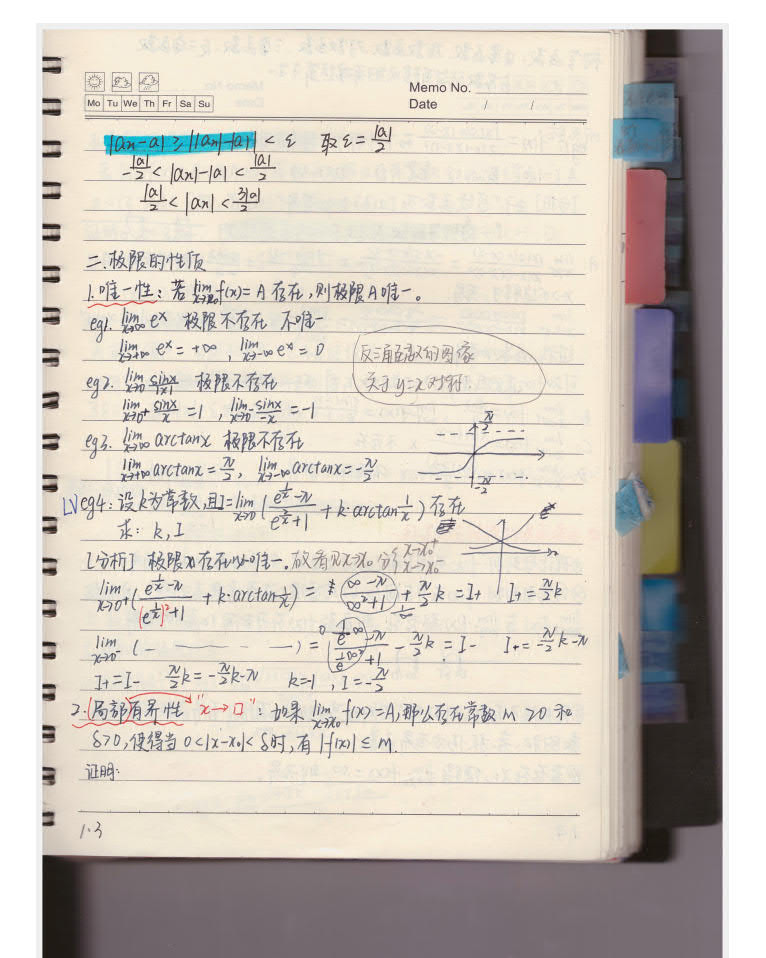 Memo No.
Mo Tu We Th Fr Sa Su
Date / /
|an-a| ≥ ||an|-|a|| < ε 取ε=|a|/2
-|a|/2 < |an|-|a| < |a|/2
|a|/2 < |an| < 3|a|/2
二.极限的性质
1.唯一性：若 lim x→x0 f(x)=A 存在,则极限A唯一。
eg1. lim x→∞ e^x 极限不存在 不唯一
lim x→+∞ e^x=+∞, lim x→-∞ e^x=0
反三角函数的图像
关于y=x对称.
eg2. lim x→0 sinx/|x| 极限不存在
lim x→0+ sinx/x =1, lim x→0- sinx/-x =-1
eg3. lim x→∞ arctanx 极限不存在
lim x→+∞ arctanx=π/2, lim x→-∞ arctanx=-π/2
π/2
-π/2
eg4:设k为常数,且I=lim x→0 ( (e^(1/x)-π)/(e^(2/x)+1) + k·arctan 1/x ) 存在
求: k, I
e^x
[分析] 极限存在必唯一. x→x0 分 x→x0+ x→x0-
lim x→0+ ( (e^(1/x)-π)/((e^(1/x))^2+1) + k·arctan 1/x ) = (∞-π)/(∞²+1) + π/2 k = I+ I+=π/2 k
1/∞
lim x→0- (- - - - -) = (1/e^∞ -π)/(1/e^∞² +1) - π/2 k = I- I+=-π/2 k-π
0
I+=I- π/2 k=-π/2 k-π k=-1, I=-π/2
2.(局部)有界性 "x→□"：如果 lim x→x0 f(x)=A,那么存在常数M>0和
δ>0,使得当0<|x-x0|<δ时,有|f(x)|≤M.
证明:
1.3